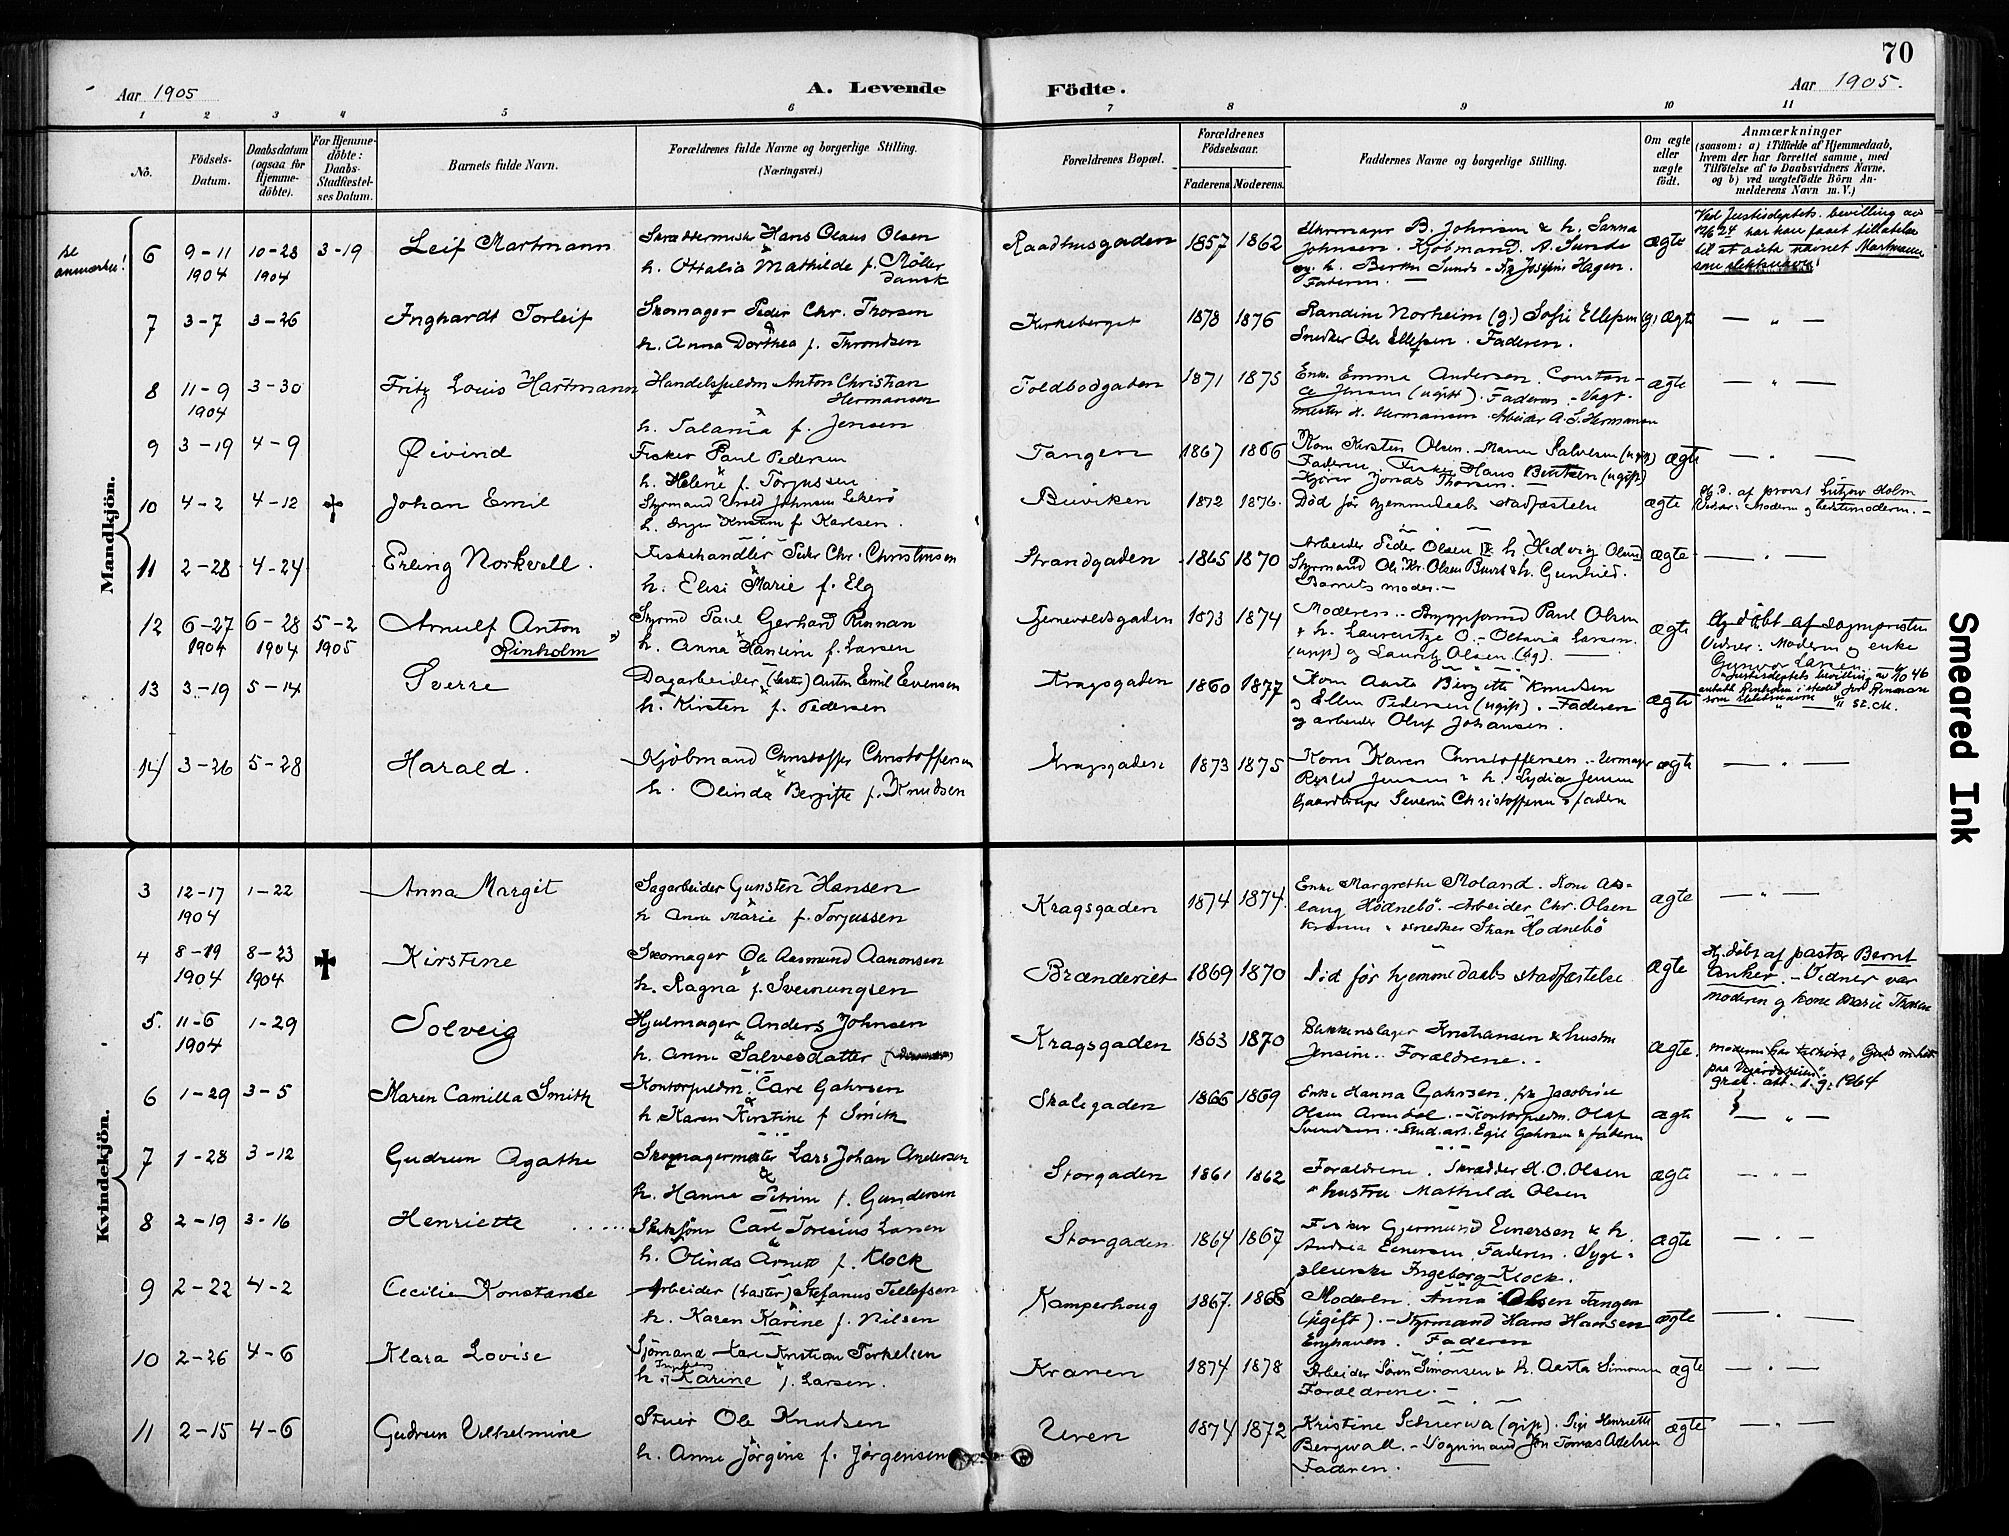 70
Aar 1905
A. Levende
Födte.
Aar 1905.
1 2 3 4 5 6 7 8 9 10 11
No.
Födsels-
Datum.
Daabsdatum
(ogsaa for
Hjemme-
döbte).
For Hjemme-
döbte:
Daabs-
Stadfæstel-
ses Datum.
Barnets fulde Navn.
Forældrenes fulde Navne og borgerlige Stilling.
(Næringsvei.)
Forældrenes Bopæl.
Forældrenes
Födselsaar.
Faderens. Moderens.
Faddernes Navne og borgerlige Stilling.
Om ægte
eller
uægte
födt.
Anmærkninger
(saasom: a) i Tilfælde af Hjemmedaab,
hvem der har forrettet samme, med
Tilföielse af to Daabsvidners Navne.
og b) ved uægtefödte Börn An-
melderens Navn m. V.)
Mandkjön.
se
anmerkn!
6 9-11 10-23 3-19 Leif Martmann Hans Olaus Olsen Raadhusgaden 1857 1862 B. Johnsen & h. Sanna ægte
1904 1904 h. Ottalia Mathilde f. Møller
Dansk
Johnsen. Kjøbmand A. Sunde
og h. Sunde - Josefine Hagen.
Faderen.
Ved Justisdeptets bevilling av
har han faaet tilladelse
til at navnet Martmann
som slektsnavn!
7 3-7 3-26 Inghardt Torleif Skomager Peder Chr. Thorsen Kirkeberget 1878 1876 Randine Norheim (g.) Sofie Ellefsen (g) ægte — " —
h. Anna Dorthea f. Throndsen Snedker Ole Ellefsen. Faderen.
8 11-9 3-30 Fritz Louis Hartmann Handelsfuldm Anton Christian Toldbodgaden 1871 1875 Enke Emma Andersen. Constan- ægte — " —
1904 Hermansen ce Jensen (ugift). Faderen - Vagt-
h. Talania f. Jensen mester H. Hermansen. Arbeider A. S. Hermansen
9 3-19 4-9 Øivind Fisker Paul Pedersen Tangen 1867 1866 Kone Kirsten Olsen. Maren Salvesen (ugift) ægte — " —
h. Helene f. Torjussen Faderen. Fisker Hans Bentsen (ugift)
Kjører Jonas Thorsen.
10 4-2 4-12 † Johan Emil Styrmand Johnsen Buviken 1872 1876. Død før hjemmedaabs stadfæstelse ægte
h. Inger Kristine f Karlsen. Hj.d. af provst Lützow Holm
Vidner: Moderen og bedstemoderen. —
11 2-28 4-24 Erling Norkvell. Fiskehandler Peder Chr. Christensen Strandgaden 1865 1870 Arbeider Peder Olsen & h. Hedvig Olsen ægte — " —
h. Elise Marie f. Elg Styrmand Ole Kr. Olsen & h. Gunhild.
Barnets moder. —
12 6-27 6-28 5-2 Arnulf Anton Styrmd Paul Gerhard Rinnan 1873 1874 Moderen. Paul Olsen ægte Hj. døbt af sogneprsten
1904 1904 1905 Rinholm h. Anna Hansine f. Larsen & h. Laurentze O. - Oktavia Larsen
(ugift) og Lauritz Olsen (ug). Vidner: Moderen og enke
Gunvor Larsen.
13 3-19 5-14 Sverre Dagarbeider (laster) Anton Emil Evensen Kragsgaden 1860 1877 Kone Bergitte Knudsen ægte
h. Kirsten f. Pedersen og Ellen Pedersen (ugift). - Faderen
og arbeider Oluf Johansen.
Justisdeptets bevilling av 46
antatt Rinholm i stedet for Rinnan
som slektsnavn
14 3-26 5-28 Harald. Kjøbmand Christoffer Christoffersen Kragsgaden 1873 1875 Kone Karen Christoffersen. Urmager ægte — " —
h. Olinda Bergitte f. Knudsen Jensen & h. Lydia Jensen
Gaardbruger Severin Christoffersen & faderen
Kvindekjön.
3 12-17 1-22 Anna Margit Sagarbeider Gunsten Hansen Kragsgaden 1874 1874. Enke Margrethe Moland. Kone As- ægte — " —
1904 h. Anne Marie f. Torjussen laug Hødnebø. Arbeider Chr. Olsen
Kranen & snedker Hødnebø
4 8-19 8-23 † Kirstine Skomager Ole Aasmund Aanonsen Brænderiet 1869 1870 Død før hjemmedaabs stadfæstelse ægte Hj. døbt af pastor Bernt
1904 1904 h. Ragna f. Sveinungsen Anker. - Vidner var
moderen og kone Marie Thorsen
5. 11-6 1-29 Solveig Hjulmager Anders Johnsen Kragsgaden 1863 1870 Blikkenslager Kristiansen & hustru ægte.
1904 h. Anne Salvesdatter Jensine. Forældrene. -
1964
6 1-29 3-5 Maren Camilla Smith Kontorfuldm. Carl Gahrsen Skolegaden 1866 1869 Enke Hanna Gahrsen, frk Jacobine ægte — " —
h. Karen Kirstine f Smith Olsen Arendal. - Kontorfuldm. Olaf
Svendsen. - Stud. art. Egil Gahrsen & faderen
7 1-28 3-12 Gudrun Agathe Skomagermester Lars Johan Andersen Storgaden 1861 1862 Forældrene. Skrædder H. O. Olsen ægte — " —
h. Hanna Petrine f. Gundersen & hustru Mathilde Olsen
8 2-19 3-16 Henriette Carl Larsen Storgaden 1864 1867 Fisker Gjermund Einersen & h. ægte — " —
h. Olinda f. Klock Andrea Einersen, Faderen. Syge-
pleierske Ingeborg Klock.
9 2-22 4-2 Cecilie Konstanse Arbeider (laster) Stefanus Tellefsen Kamperhoug 1867. 1868 Moderen. Anna Olsen Tangen ægte — " —
h. Karen Karine f. Nilsen (ugift). - Styrmand Hans Hansen
Enghaven. Faderen
10 2-26 4-6 Klara Lovise Sjømand Kristian Torkelsen Kranen 1874 1878 Arbeider Søren Simonsen & h. Aasta Simonsen ægte — " —
h. Karine f. Larsen. Forældrene. -
11 2-15 4-6 Gudrun Vilhelmine Stuer Ole Knudsen Uren 1874 1872 Kristine (gift). Pige Henriette ægte — " —
h. Anne Jørgine f. Jørgensen Bergwall. - Vognmand Tomas Adelsen
Faderen.
Smeared Ink